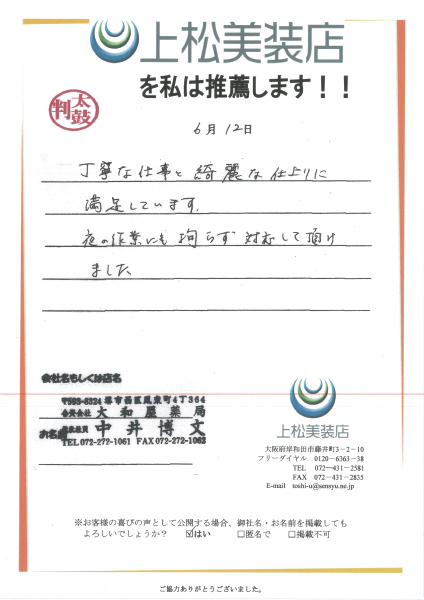 上松美装店
を私は推薦します!!
太鼓
判
6月 12日
丁寧な仕事と綺麗な仕上りに
満足しています。
夜の作業にも拘らず対応して頂け
ました
会社名もしくは店名
〒593-8324 堺市西区鳳東町4丁364
合資会社 大和屋薬局
お名前
中井博文
TEL 072-272-1061 FAX 072-272-1063
上松美装店
大阪府岸和田市藤井町3-2-10
フリーダイヤル 0120-6363-38
TEL 072-431-2581
FAX 072-431-2835
E-mail toshi-u@sensyu.ne.jp
※お客様の喜びの声として公開する場合、御社名・お名前を掲載しても
よろしいでしょうか? ☑はい □匿名で □掲載不可
ご協力ありがとうございました。